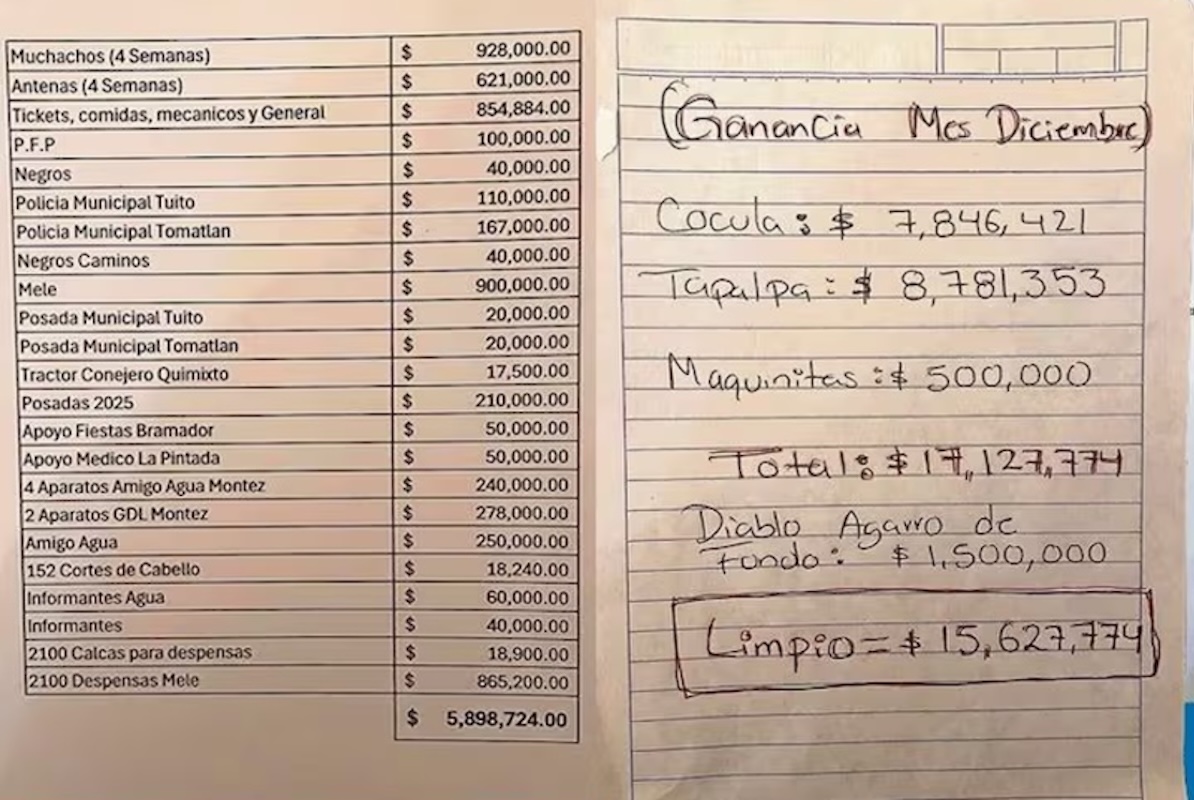 Muchachos (4 Semanas) $ 928,000.00
Antenas (4 Semanas) $ 621,000.00
Tickets, comidas, mecanicos y General $ 854,884.00
P.F.P $ 100,000.00
Negros $ 40,000.00
Policia Municipal Tuito $ 110,000.00
Policia Municipal Tomatlan $ 167,000.00
Negros Caminos $ 40,000.00
Mele $ 900,000.00
Posada Municipal Tuito $ 20,000.00
Posada Municipal Tomatlan $ 20,000.00
Tractor Conejero Quimixto $ 17,500.00
Posadas 2025 $ 210,000.00
Apoyo Fiestas Bramador $ 50,000.00
Apoyo Medico La Pintada $ 50,000.00
4 Aparatos Amigo Agua Montez $ 240,000.00
2 Aparatos GDL Montez $ 278,000.00
Amigo Agua $ 250,000.00
152 Cortes de Cabello $ 18,240.00
Informantes Agua $ 60,000.00
Informantes $ 40,000.00
2100 Calcas para despensas $ 18,900.00
2100 Despensas Mele $ 865,200.00
$ 5,898,724.00
(Ganancia Mes Diciembre)
Cocula: $ 7,846,421
Tapalpa: $ 8,781,353
Maquinitas: $ 500,000
Total: $ 17,127,774
Diablo Agarro de
Fondo: $ 1,500,000
Limpio = $ 15,627,774